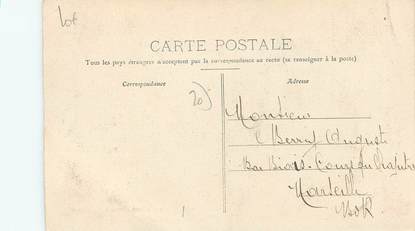 Lot
CARTE POSTALE
Tous les pays étrangers n'acceptent pas la correspondance au recto (se renseigner à la poste)
Correspondance
Adresse
20
Monsieur
Auguste
Bar
Marseille